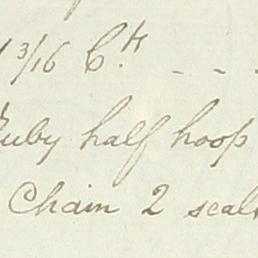 1 3/16 Ct. - - -
Ruby half hoop
Chain 2 seals